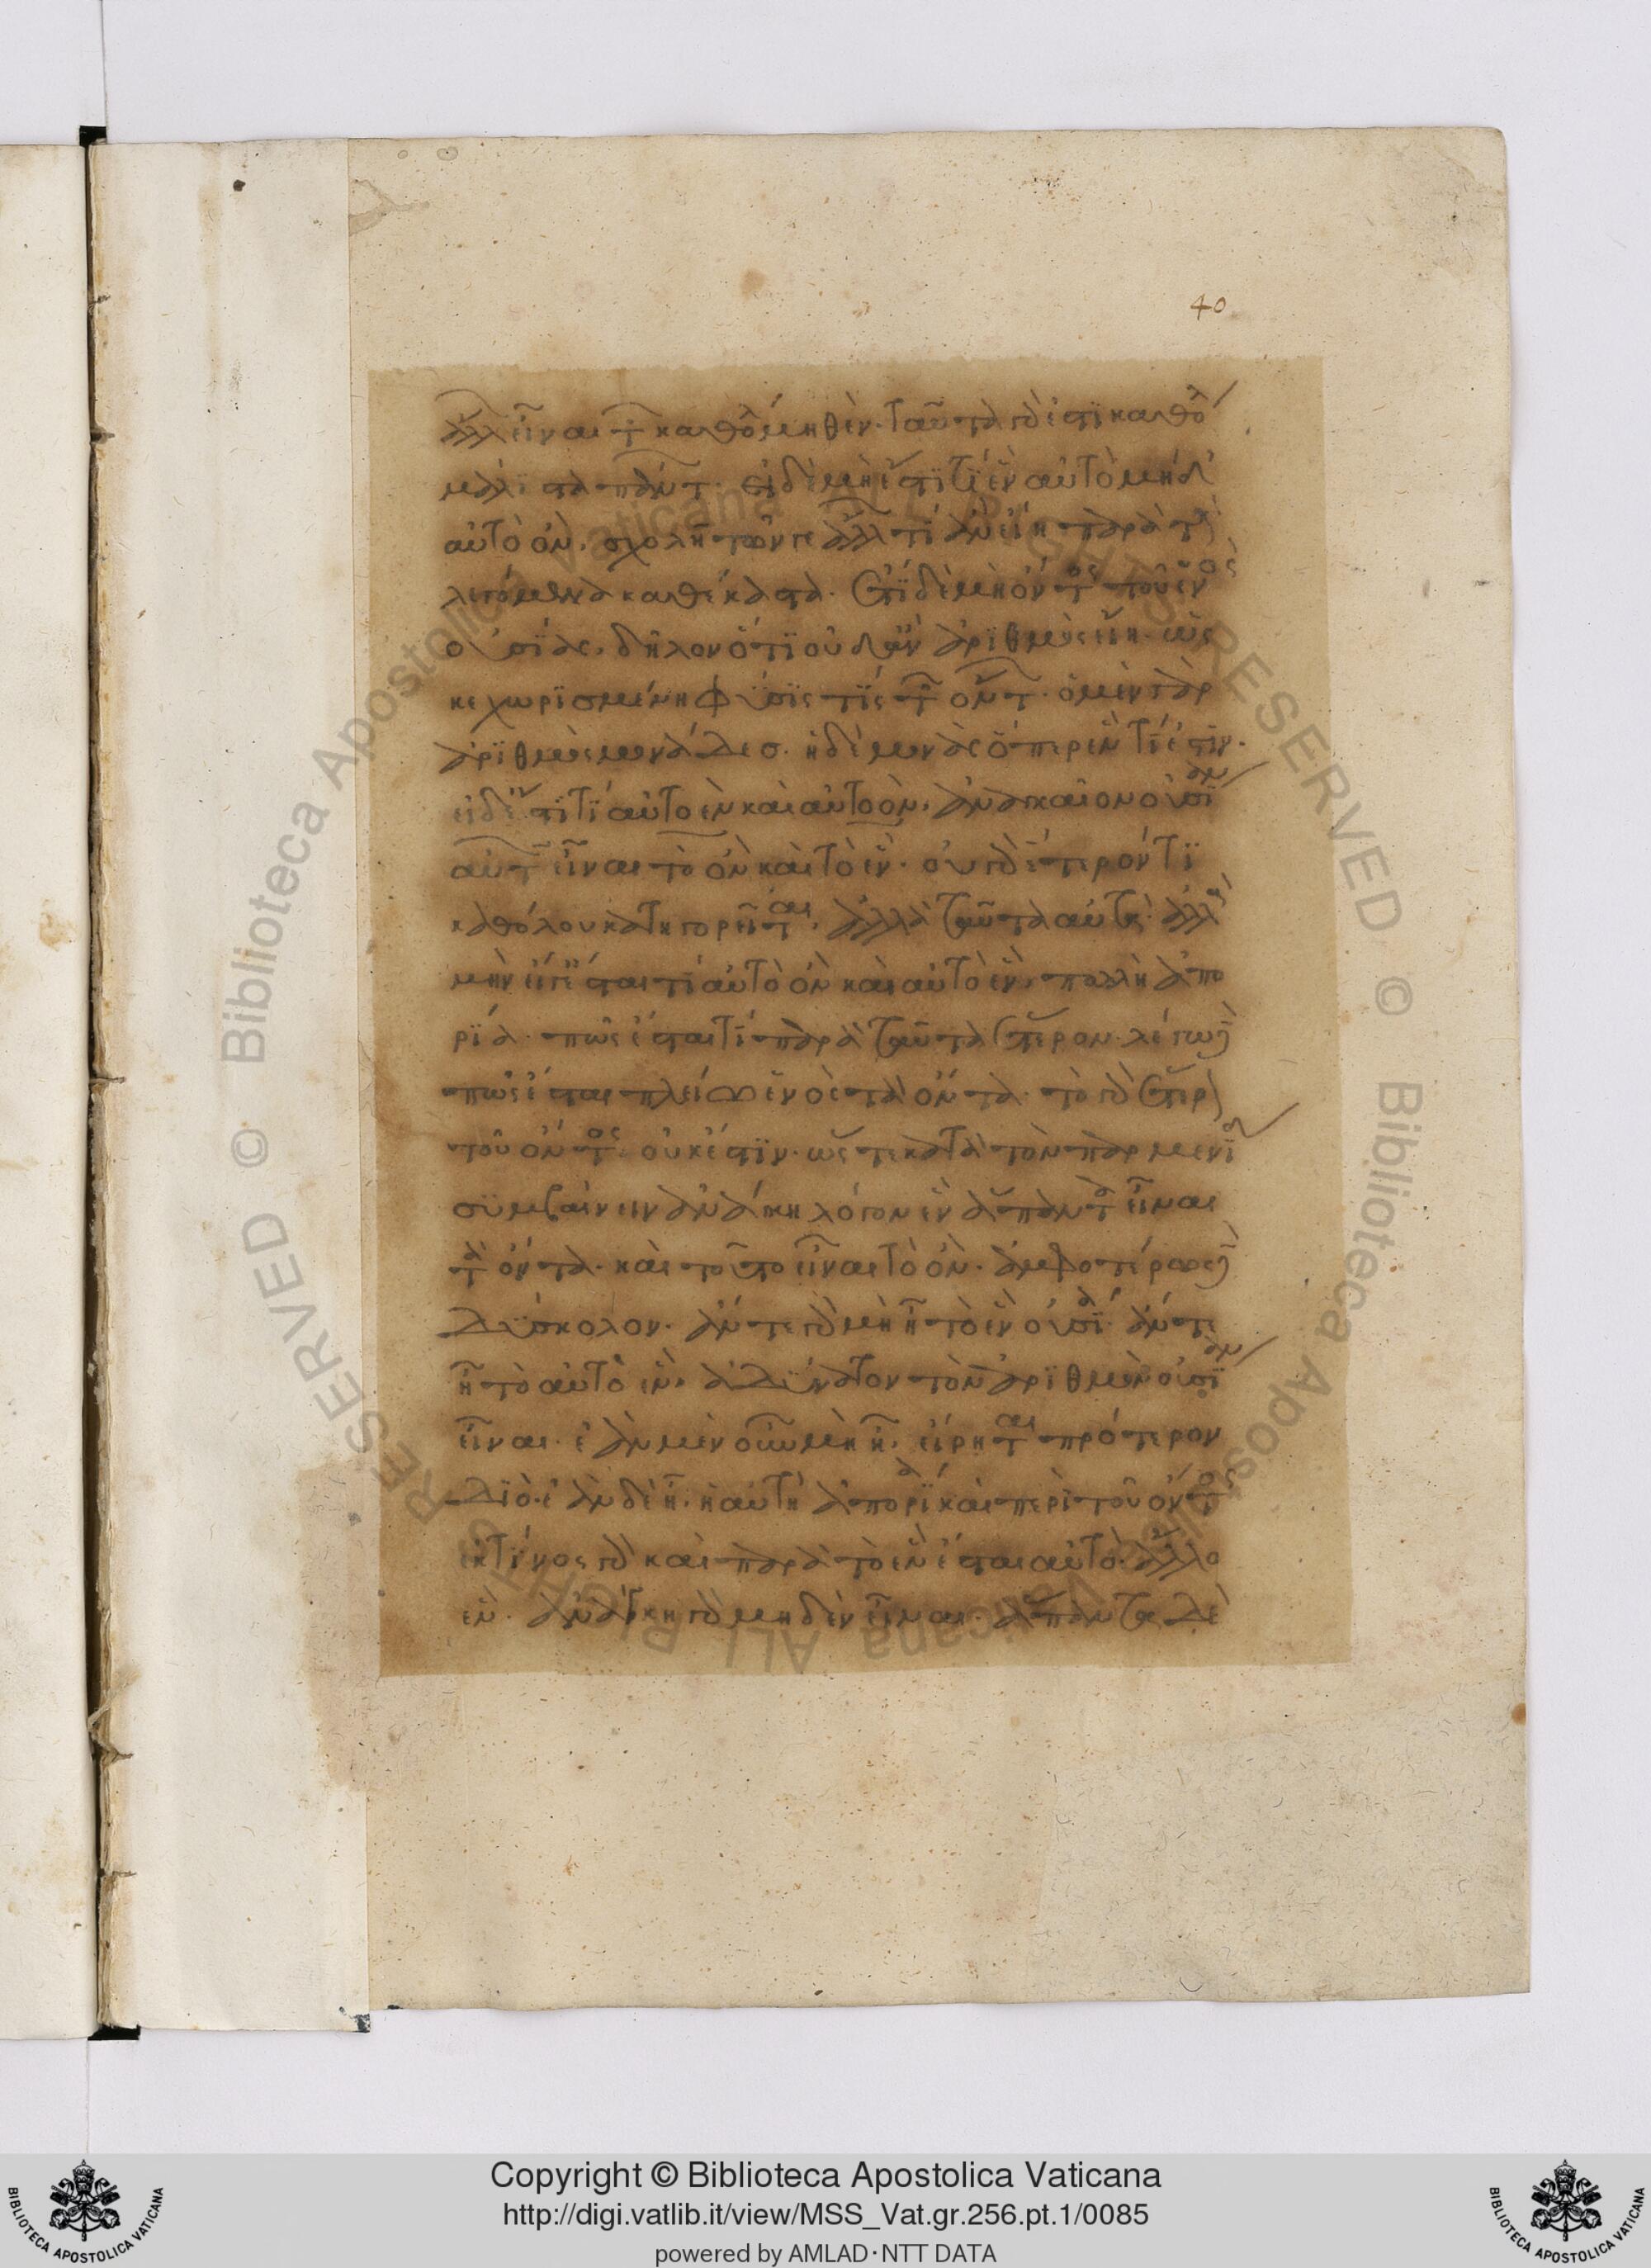 ἄλλων εἶναι τῶν καθόλου μηθέν· ταῦτα γάρ ἐστϊ καθόλου
μάλϊστα πάντων· εἰ δὲ μὴ ἔστϊ τϊ ἓν αὐτὸ μηδ'
αὐτὸ ὄν, σχολῆ τῶν γε ἄλλων τί ἂν εἴη παρὰ τὰ
λεγόμενα καθέκαστα· ἔτϊ δὲ μὴ ὄντος τοῦ ἑνὸς
οὐσϊας, δῆλον ὅτϊ οὐδ' ἂν ἀρϊθμὸς εἴη· ὡς
κεχωρϊσμένη φύσϊς τϊς τῶν ὄντων· ὁ μὲν γὰρ
ἀρϊθμὸς μονάδες· ἡ δὲ μονὰς ὅπερ ἕν τί ἐστϊν·
εἰ δ' ἔστϊ τϊ αὐτοὲν καὶ αὐτοὸν, ἀναγκαῖον οὐσϊαν
αὐτῶν εἶναι τὸ ὂν καὶ τὸ ἕν· οὐ γὰρ ἕτερόν τϊ
καθόλου κατηγορεῖται, ἀλλὰ ταῦτα αὐτά· ἀλλὰ
μὴν εἴ γ' ἔσται τί αὐτὸ ὂν καὶ αὐτὸ ἕν, πολλὴ ἀπο
ρϊα· πῶς ἔσται τί παρὰ ταῦτα ἕτερον· λέγω δὲ
πῶς ἔσται πλείω ἑνὸς τὰ ὄντα· τὸ γὰρ ἕτερον
τοῦ ὄντος, οὐκ ἔστϊν· ὥστε κατὰ τὸν παρμενϊδου
συμβαίνειν ἀνάγκη λόγον ἓν ἅπαντα εἶναι
τὰ ὄντα· καὶ τοῦτο εἶναι τὸ ὄν· ἀμφοτέρως δὲ
δύσκολον· ἄν τε γὰρ μὴ ἦ τὸ ἓν οὐσϊα· ἄν τε
ἦ τὸ αὐτὸ ἕν, ἀδύνατον τὸν ἀρϊθμὸν οὐσϊαν
εἶναι· ἐὰν μὲν οὖν μὴ ἦ, εἴρηται πρότερον
δϊὸ· ἐὰν δὲ ἦ, ἡ αὐτὴ ἀπορϊα καὶ περὶ τοῦ ὄντος
ἐκ τϊνος γὰρ καὶ παρὰ τὸ ἓν ἔσται αὐτὸ ἄλλο
ἕν· ἀνάγκη γὰρ μηδὲν εἶναι· ἅπαντα δὲ
40
Copyright © Biblioteca Apostolica Vaticana
http://digi.vatlib.it/view/MSS_Vat.gr.256.pt.1/0085
powered by AMLAD·NTT DATA
BIBLIOTECA APOSTOLICA VATICANA
BIBLIOTECA APOSTOLICA VATICANA